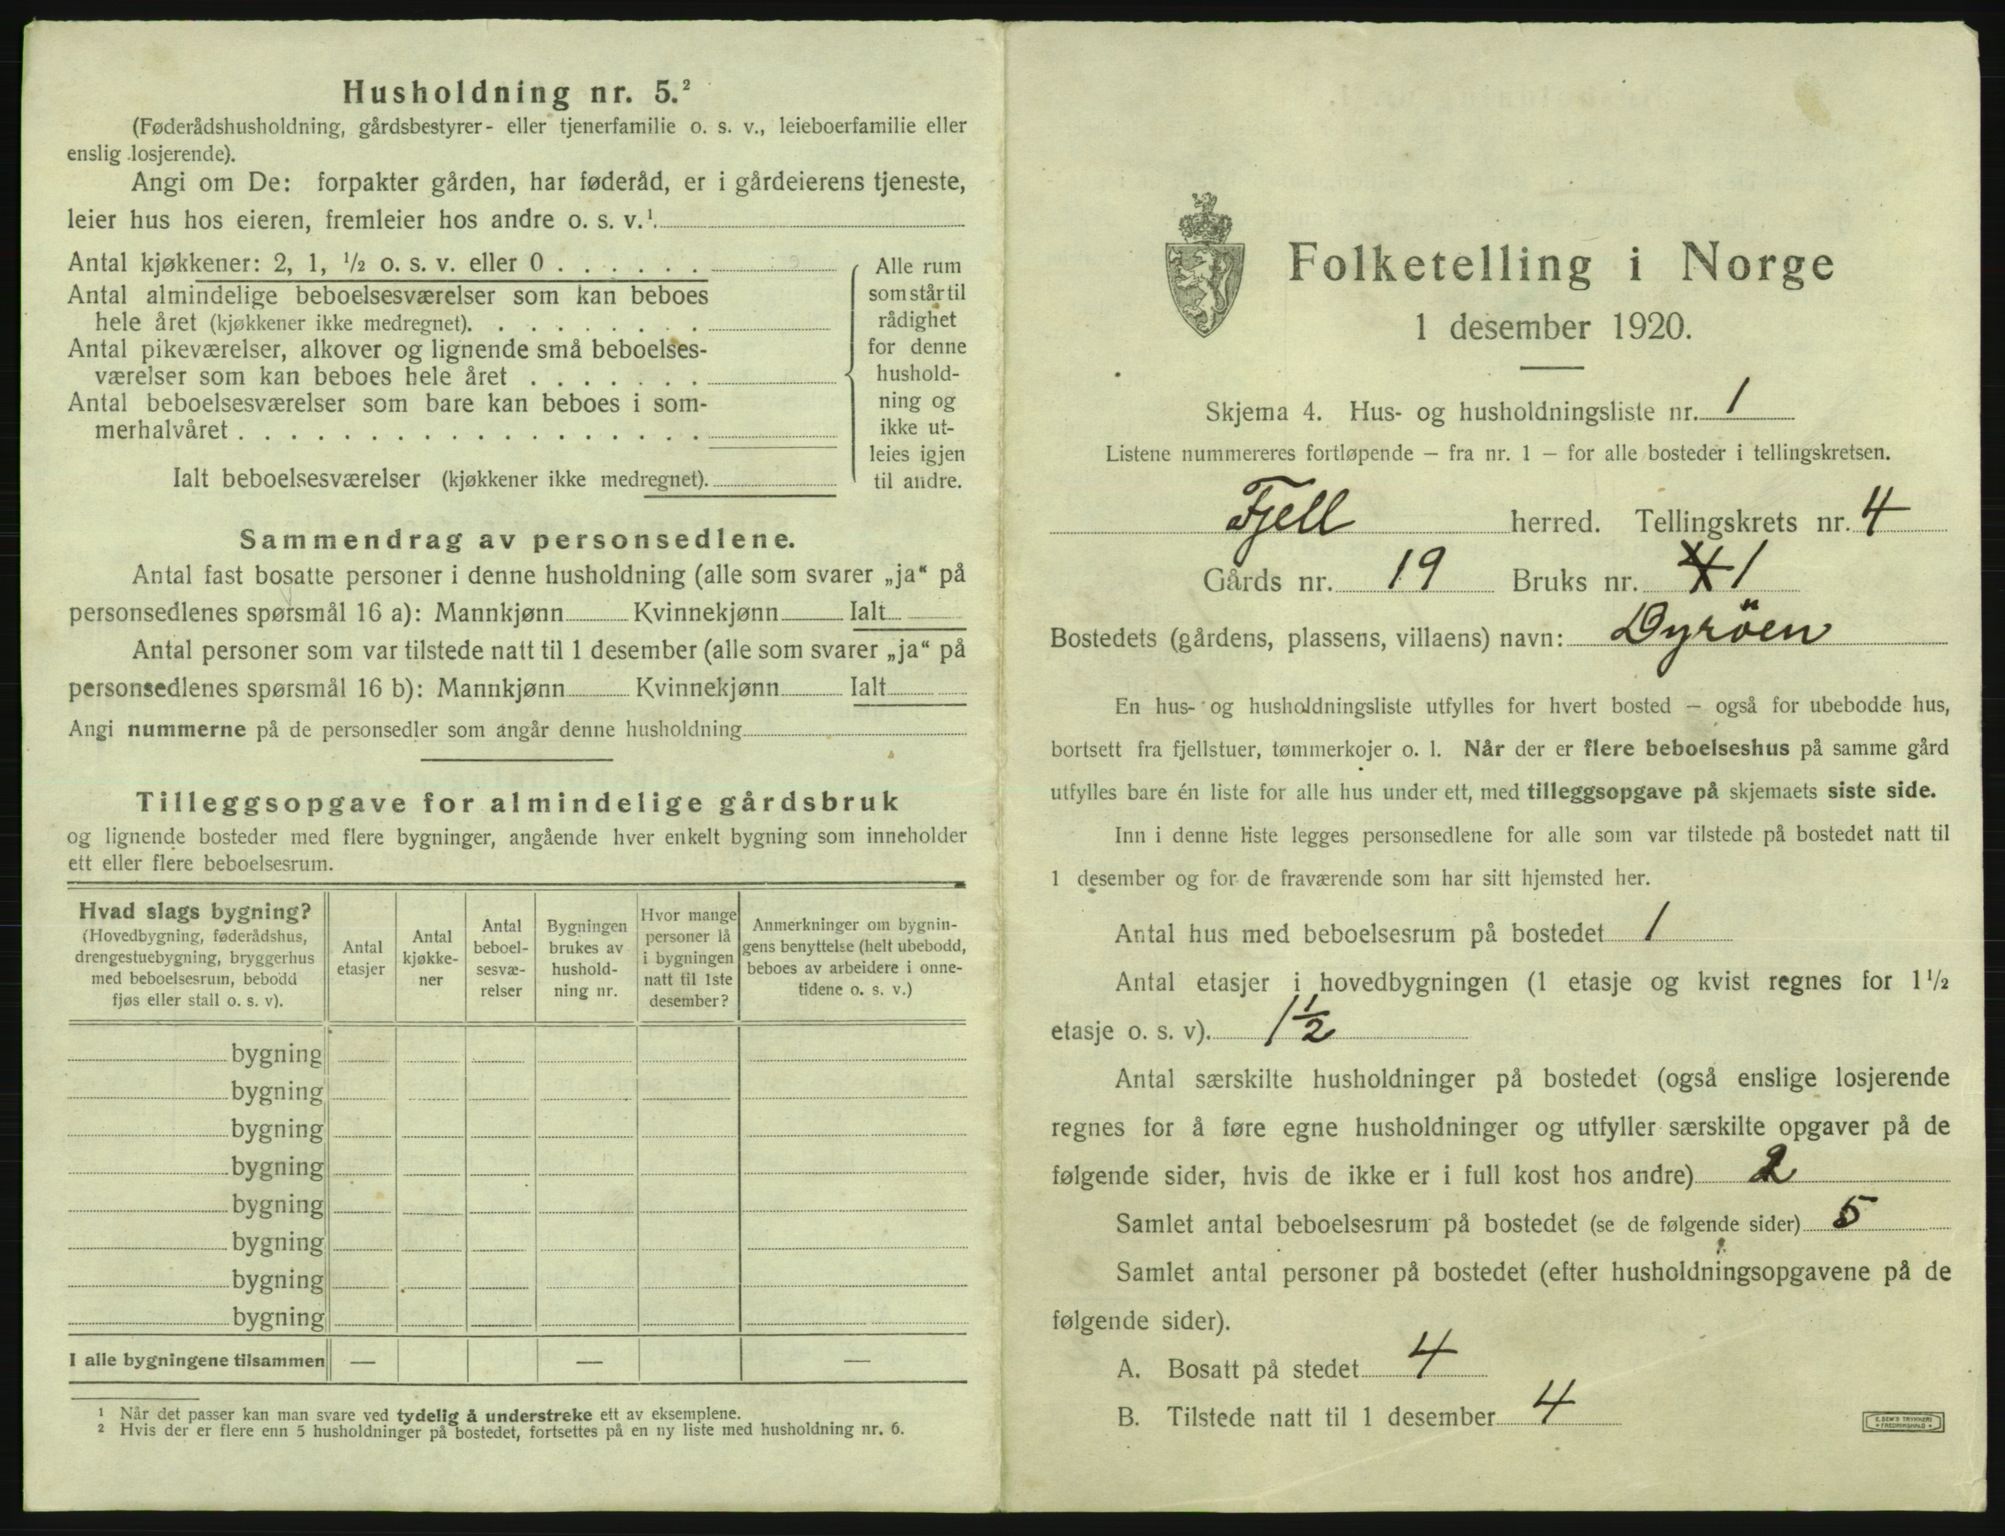 Husholdning nr. 5.²
(Føderådshusholdning, gårdsbestyrer- eller tjenerfamilie o. s. v., leieboerfamilie eller
enslig losjerende).
Angi om De: forpakter gården, har føderåd, er i gårdeierens tjeneste,
leier hus hos eieren, fremleier hos andre o. s. v.¹
Antal kjøkkener: 2, 1, ½ o. s. v. eller 0 . . . . . .
Antal almindelige beboelsesværelser som kan beboes
hele året (kjøkkener ikke medregnet). . . . . . . . .
Antal pikeværelser, alkover og lignende små beboelses-
værelser som kan beboes hele året . . . . . . .
Antal beboelsesværelser som bare kan beboes i som-
merhalvåret . . . . . . . . . . . . . . . . . .
Ialt beboelsesværelser (kjøkkener ikke medregnet).
Alle rum
som står til
rådighet
for denne
hushold-
ning og
ikke ut-
leies igjen
til andre.
Sammendrag av personsedlene.
Antal fast bosatte personer i denne husholdning (alle som svarer „ja“ på
personsedlenes spørsmål 16 a): Mannkjønn Kvinnekjønn Ialt
Antal personer som var tilstede natt til 1 desember (alle som svarer „ja“ på
personsedlenes spørsmål 16 b): Mannkjønn Kvinnekjønn Ialt
Angi nummerne på de personsedler som angår denne husholdning
Tilleggsopgave for almindelige gårdsbruk
og lignende bosteder med flere bygninger, angående hver enkelt bygning som inneholder
ett eller flere beboelsesrum.
Hvad slags bygning?
(Hovedbygning, føderådshus,
drengestuebygning, bryggerhus
med beboelsesrum, bebodd
fjøs eller stall o. s. v).
Antal
etasjer
Antal
kjøkke-
ner
Antal
beboel-
sesvæ-
relser
Bygningen
brukes av
hushold-
ning nr.
Hvor mange
personer lå
i bygningen
natt til 1ste
desember?
Anmerkninger om bygnin-
gens benyttelse (helt ubebodd,
beboes av arbeidere i onne-
tidene o. s. v.)
bygning
bygning
bygning
bygning
bygning
bygning
bygning
bygning
I alle bygningene tilsammen — — —
¹ Når det passer kan man svare ved tydelig å understreke ett av eksemplene.
² Hvis der er flere enn 5 husholdninger på bostedet, fortsettes på en ny liste med husholdning nr. 6.
Folketelling i Norge
1 desember 1920.
Skjema 4. Hus- og husholdningsliste nr. 1
Listene nummereres fortløpende — fra nr. 1 — for alle bosteder i tellingskretsen.
Fjell herred. Tellingskrets nr. 4
Gårds nr. 19 Bruks nr. 1
Bostedets (gårdens, plassens, villaens) navn: Dyröen
En hus- og husholdningsliste utfylles for hvert bosted — også for ubebodde hus,
bortsett fra fjellstuer, tømmerkojer o. l. Når der er flere beboelseshus på samme gård
utfylles bare én liste for alle hus under ett, med tilleggsopgave på skjemaets siste side.
Inn i denne liste legges personsedlene for alle som var tilstede på bostedet natt til
1 desember og for de fraværende som har sitt hjemsted her.
Antal hus med beboelsesrum på bostedet 1
Antal etasjer i hovedbygningen (1 etasje og kvist regnes for 1½
etasje o. s. v). 1½
Antal særskilte husholdninger på bostedet (også enslige losjerende
regnes for å føre egne husholdninger og utfyller særskilte opgaver på de
følgende sider, hvis de ikke er i full kost hos andre) 2
Samlet antal beboelsesrum på bostedet (se de følgende sider) 5
Samlet antal personer på bostedet (efter husholdningsopgavene på de
følgende sider).
A. Bosatt på stedet 4
B. Tilstede natt til 1 desember 4
E. SEM'S TRYKKERI
FREDRIKSHALD